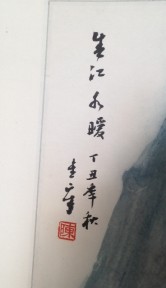 春江水暖 丁丑年秋
陳